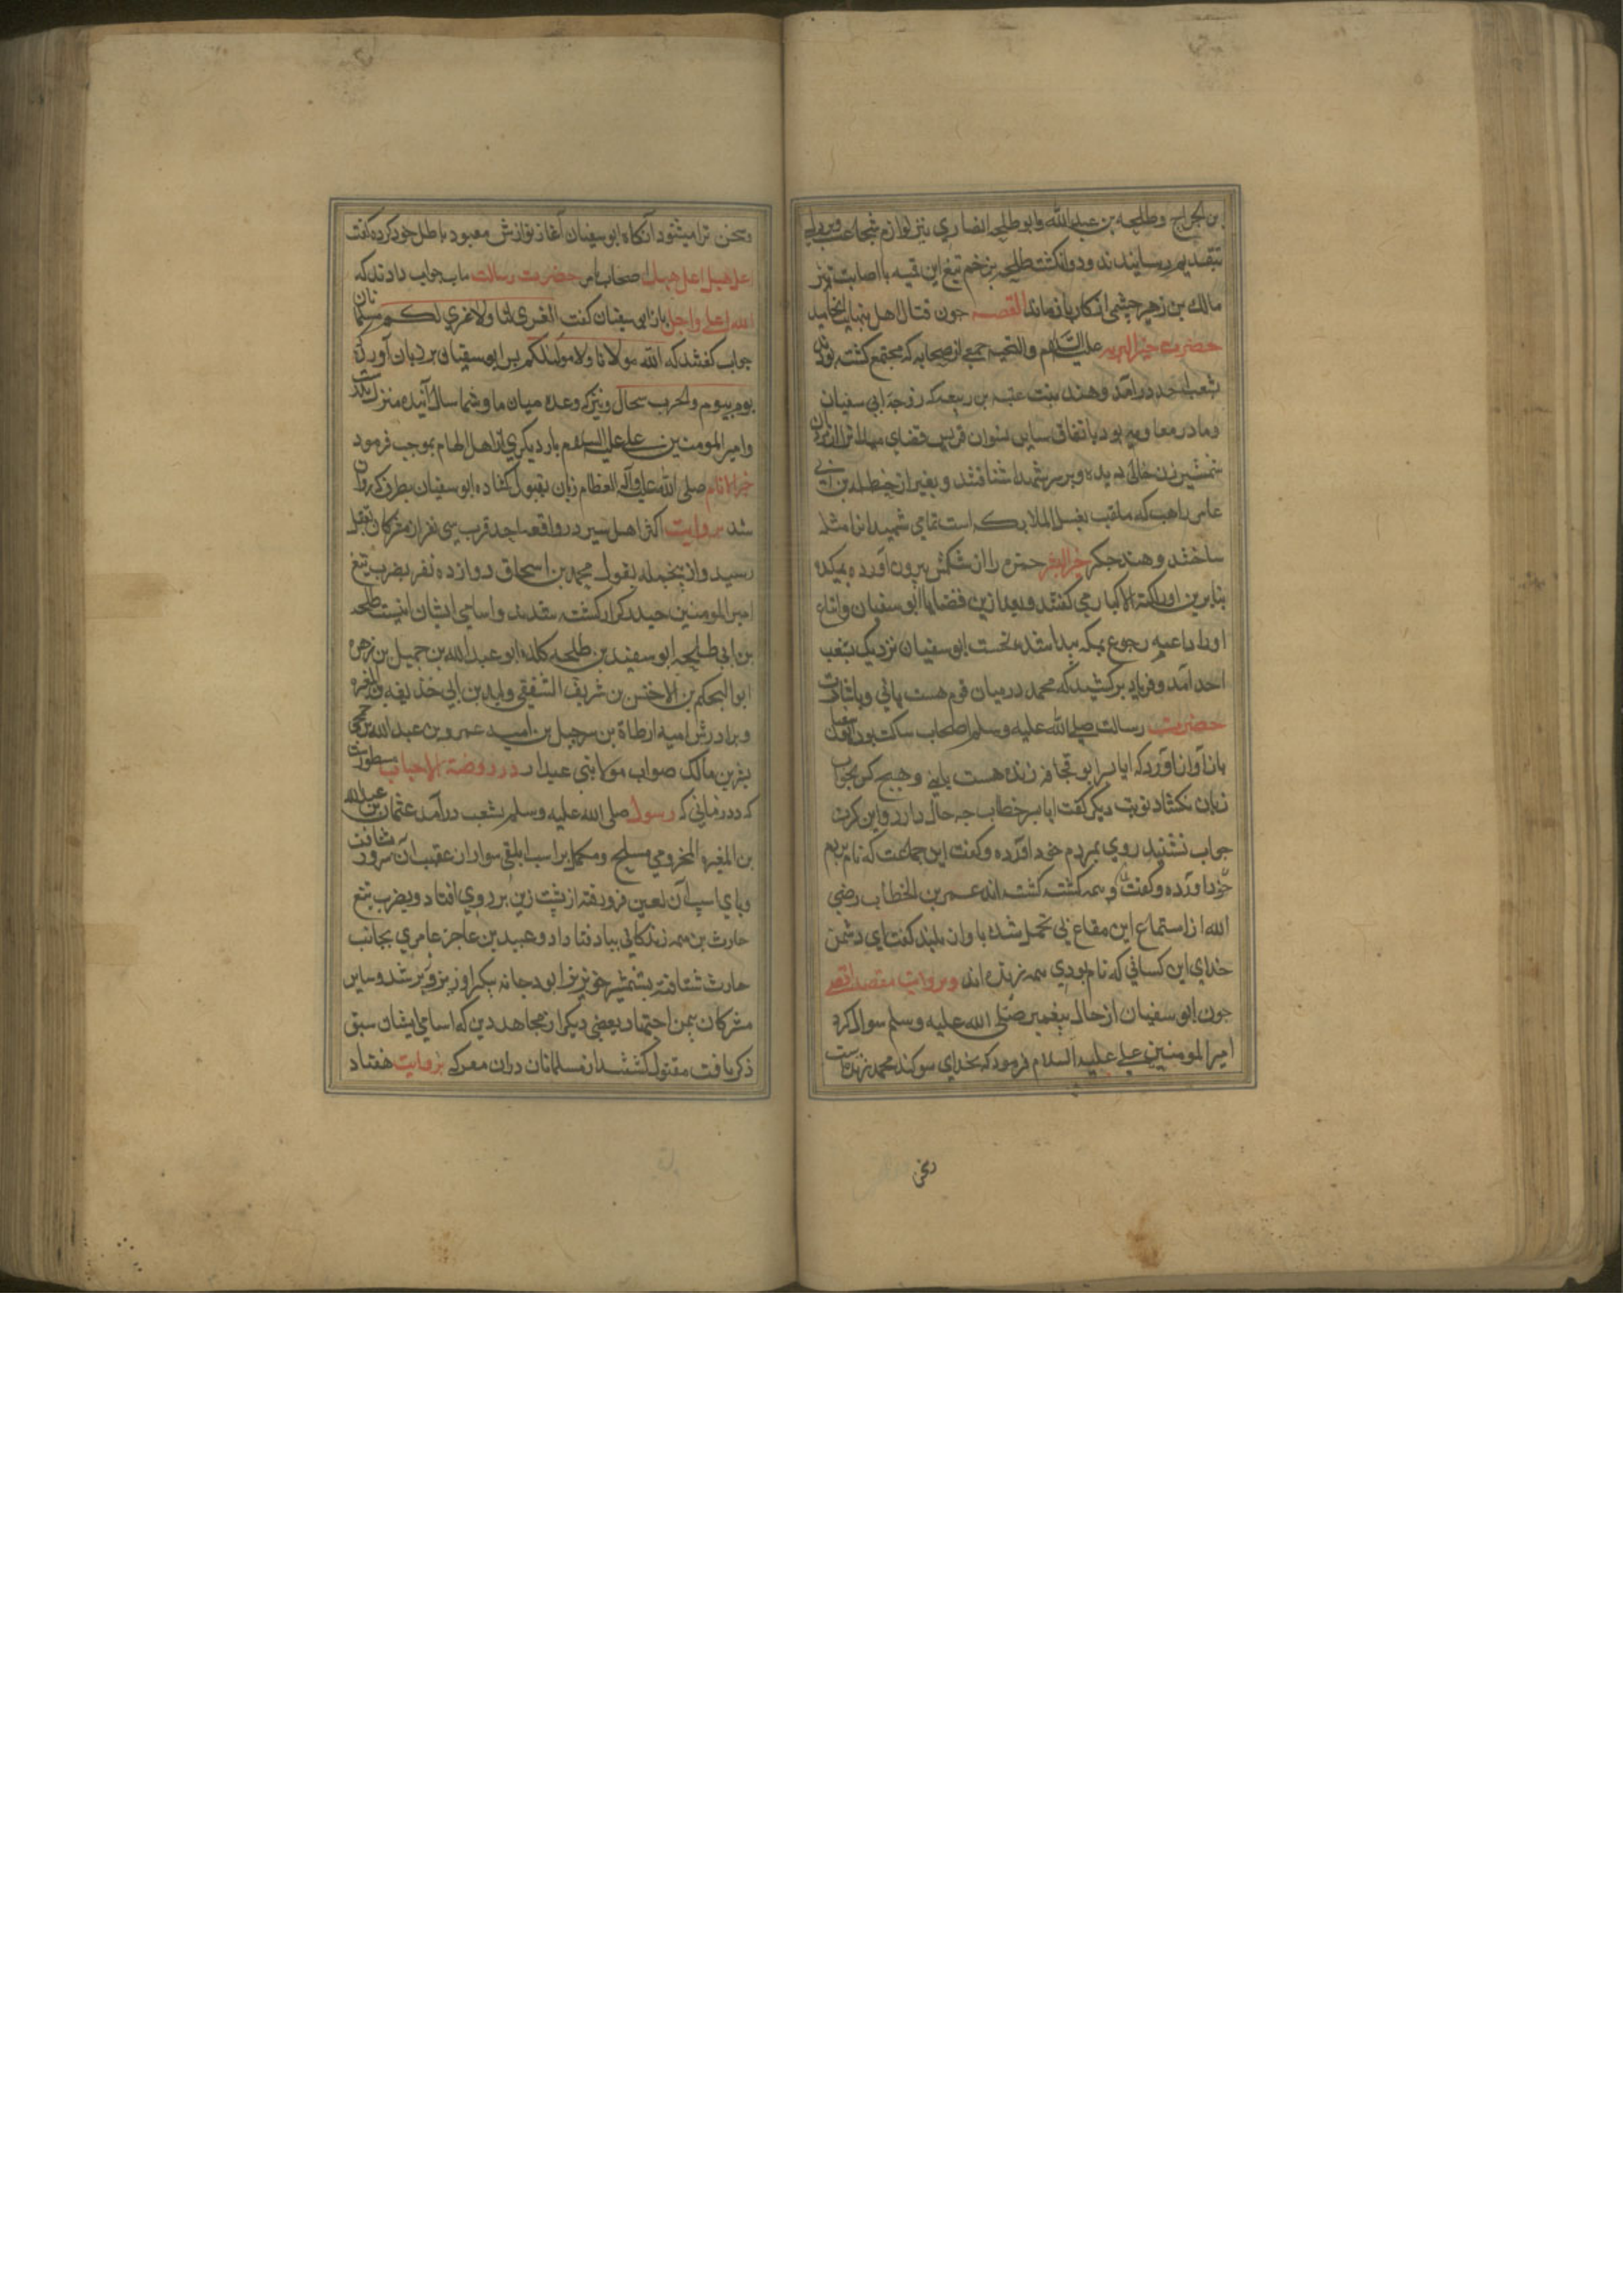 بن الجراح وطلحه بن عبدالله وابو طلحه انصاري نيز لوازم شجاعت ومردانكي
بتقديم رسانيدند ودو انكشت طلحه بزخم تيغ ابن قميه با اصابت تير
مالك بن زهير جشمي از كار باز ماند القصه جون قتال اهل بنهايت انجاميد
حضرت خير البريه عليه السلام والتحيه جمعي از صحابه كه مجتمع كشته بودند
بشعب احد درامد وهند بنت عتبه بن ربيعه كه زوجه ابي سفيان
ومادر معاويه بود باتفاق ساير نسوان قريش فضاي ميدانرا از مردان
شمشيرزن خالي ديده وبر سر شهدا شتافتند وبغير از حنظله بن ابي
عامر راهب كه ملقب بغسيل الملايكه است تمامي شهيدانرا مثله
ساختند وهند جكر خير البشر حمزه را از شكمش بيرون آورده بمكيد
بنابرين اورا اكلة الاكباد مي كفتند وبعد ازين قضايا ابو سفيان واتباع
اورا داعيه رجوع بمكه پيدا شده نخست ابو سفيان نزديك بشعب
احد آمد وفرياد بركشيد كه محمد درميان قوم هست يا ني وباشارت
حضرت رسالت صلي الله عليه وسلم اصحاب ساكت بودند ابو سفيان
باز آواز آورد كه ايا پسر ابو قحافه زنده هست يا ني وهيچ كس بجواب
زبان نكشاد نوبت ديكر كفت ايا پسر خطاب چه حال دارد واين كرت
جواب نشنيد روي بمردم خود آورده وكفت اين جماعت كه نام بردم
خود آورده وكفت وهمه كشته كشته اند عمر بن الخطاب رضي
الله از استماع اين مقاع بي تحمل شده باواز بلند كفت اي دشمن
خداي اين كساني كه نام بودي همه زنده اند وبروايت مقصد اقصي
جون ابو سفيان از حال پيغمبر صلي الله عليه وسلم سوال كرد
امير المومنين علي عليه السلام فرمود كه بخداي سوكند محمد زنده است
وسخن
وسخن ترا ميشنود آنكاه ابو سفيان آغاز نوازش معبود باطل خود كرده كفت
اعل هبل اعل هبل اصحاب بامر حضرت رسالت ماب جواب دادند كه
الله اعلي واجل باز ابي سفيان كفت العزي لنا ولا عزي لكم مسلمانان
جواب كفتند كه الله مولانا ولا مولي لكم پس ابو سفيان بر زبان آورد كه
يوم بيوم والحرب سجال ونيز كه وعده ميان ما وشما سال آينده منزل بدرست
وامير المومنين علي عليه السلام يار ديكري از اهل الهام بموجب فرمود
خير الانام صلي الله عليه وآله العظام زبان بقبول كشاده ابو سفيان بطرف مكه روان
شد بروايت اكثر اهل سير در واقعه احد قرب سي نفر از مشركان بقتل
رسيد وازينجمله بقول محمد بن اسحاق دوازده نفر بضرب تيغ
امير المومنين حيدر كرار كشته شدند واسامي ايشان اينست طلحه
بن ابي طلحه ابو سفيد بن طلحه كلده ابو عبد الله بن حميل بن زهره
ابو الحكم بن الاخنس بن شريف الشقفي وليد بن ابي حذيفه بن المغيره
وبرادرش اميه ارطاة بن سرجيل بن اميد عمرو بن عبد الله جمحي
بشر بن مالك صواب مولا بني عبدار در روضة الاحباب مسطورست
كه در زماني كه رسول صلي الله عليه وسلم بشعب درآمد عثمان بن عبدالله
بن المغيره المخزومي مسلح ومكمل براسب ابلقي سوار از عقب آن سرور شتافت
وپاي اسپ آن لعين فرو رفته از پشت زين بر روي افتاد وبضرب تيغ
حارث بن صمه زندكاني بباد فنا داد وعبيد بن عاجز عامري بجانب
حارث شتافته بشمشير خونريز ابو دجانه پيكر او زيز وزبر شد وساير
مشركان بيمن اجتهاد بعضي ديكر از مجاهد دين كه اسامي ايشان سبق
ذكر يافت مقتول كشتند از مسلمانان دران معركه بروايت هفتاد